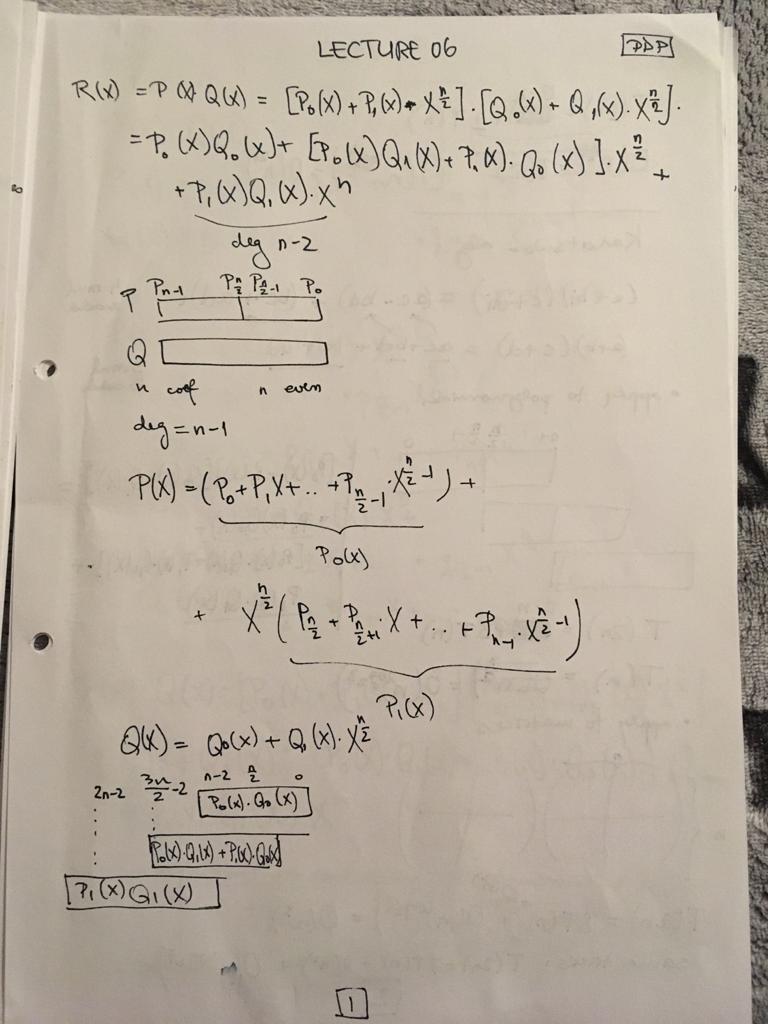 LECTURE 06
PDP
R(X) = P(X) Q(X) = [P₀(X) + P₁(X) · X^(n/2)] · [Q₀(X) + Q₁(X) · X^(n/2)].
= P₀(X)Q₀(X) + [P₀(X)Q₁(X) + P₁(X) · Q₀(X)] · X^(n/2) +
+ P₁(X)Q₁(X) · Xⁿ
deg n-2
P_(n-1) P_(n/2) P_(n/2-1) P₀
P
Q
n coef n even
deg = n-1
P(X) = (P₀ + P₁X + .. + P_(n/2-1) · X^(n/2-1)) +
P₀(X)
+ X^(n/2) (P_(n/2) + P_(n/2+1) · X + .. + P_(n-1) · X^(n/2-1))
P₁(X)
Q(X) = Q₀(X) + Q₁(X) · X^(n/2)
2n-2 3n/2-2 n-2 n/2 0
P₀(X) · Q₀(X)
P₀(X) · Q₁(X) + P₁(X) · Q₀(X)
P₁(X)Q₁(X)
1